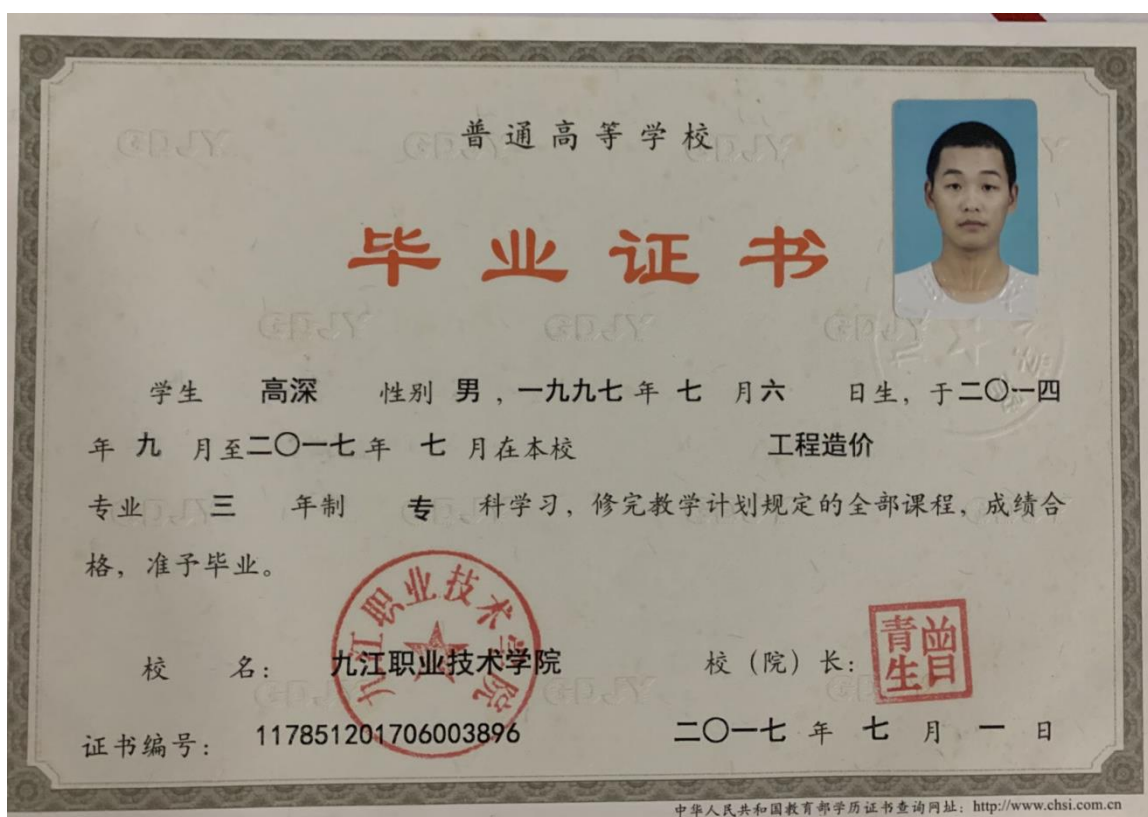 普通高等学校
毕业证书
学生 高深 性别 男，一九九七年 七 月六 日生，于二〇一四
年 九 月至二〇一七年 七 月在本校 工程造价
专业 三 年制 专 科学习，修完教学计划规定的全部课程，成绩合
格，准予毕业。
九江职业技术学院
校 名： 九江职业技术学院 校（院）长： 曾青生
证书编号： 117851201706003896 二〇一七 年 七 月 一 日
中华人民共和国教育部学历证书查询网址：http://www.chsi.com.cn